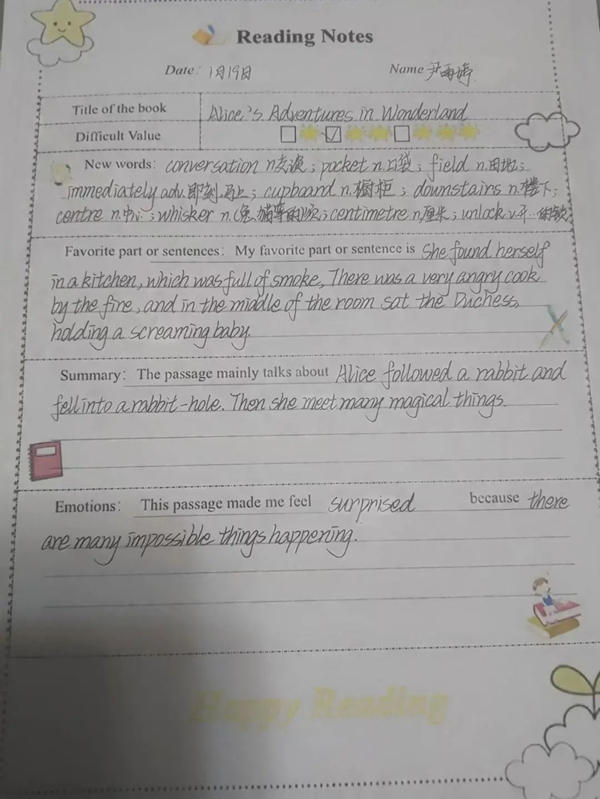 Reading Notes
Date: 1月19日 Name 尹雨婷
Title of the book Alice's Adventures in Wonderland
Difficult Value
New words: conversation n.交流; pocket n.口袋; field n.田地;
immediately adv.即刻,马上; cupboard n.橱柜; downstairs n.楼下;
centre n.中心; whisker n. centimetre n.厘米; unlock v.
Favorite part or sentences: My favorite part or sentence is She found herself
in a kitchen, which was full of smoke, There was a very angry cook
by the fire, and in the middle of the room sat the Duchess,
holding a screaming baby.
Summary: The passage mainly talks about Alice followed a rabbit and
fell into a rabbit-hole. Then she meet many magical things.
Emotions: This passage made me feel surprised because there
are many impossible things happening.
Happy Reading